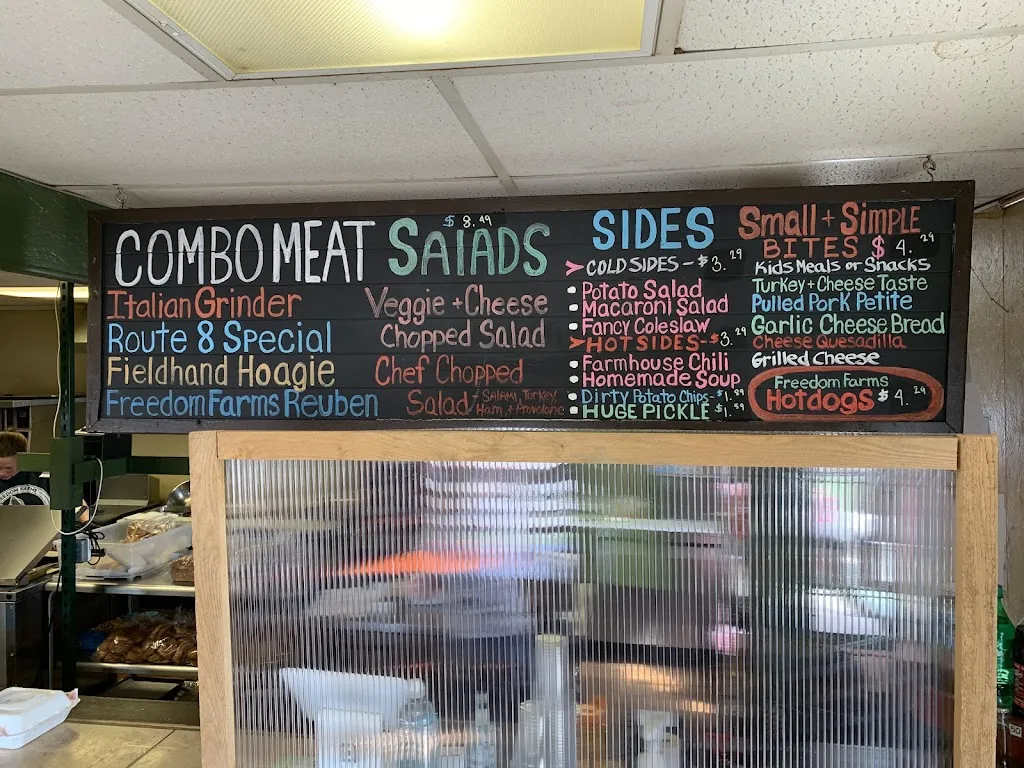 COMBO MEAT
Italian Grinder
Route 8 Special
Fieldhand Hoagie
Freedom Farms Reuben
$8.49
SAlADS
Veggie + Cheese
Chopped Salad
Chef Chopped
Salad - SALAMI, TURKEY,
HAM, + PROVOLONE
SIDES
COLD SIDES - $3.29
Potato Salad
Macaroni Salad
Fancy Coleslaw
HOT SIDES - $3.29
Farmhouse Chili
Homemade Soup
Dirty Potato Chips - $1.89
HUGE PICKLE $1.59
Small + SIMPLE
BITES $4.29
Kids Meals or Snacks
Turkey + Cheese Taste
Pulled Pork Petite
Garlic Cheese Bread
Cheese Quesadilla
Grilled Cheese
Freedom Farms
Hotdogs $4.29